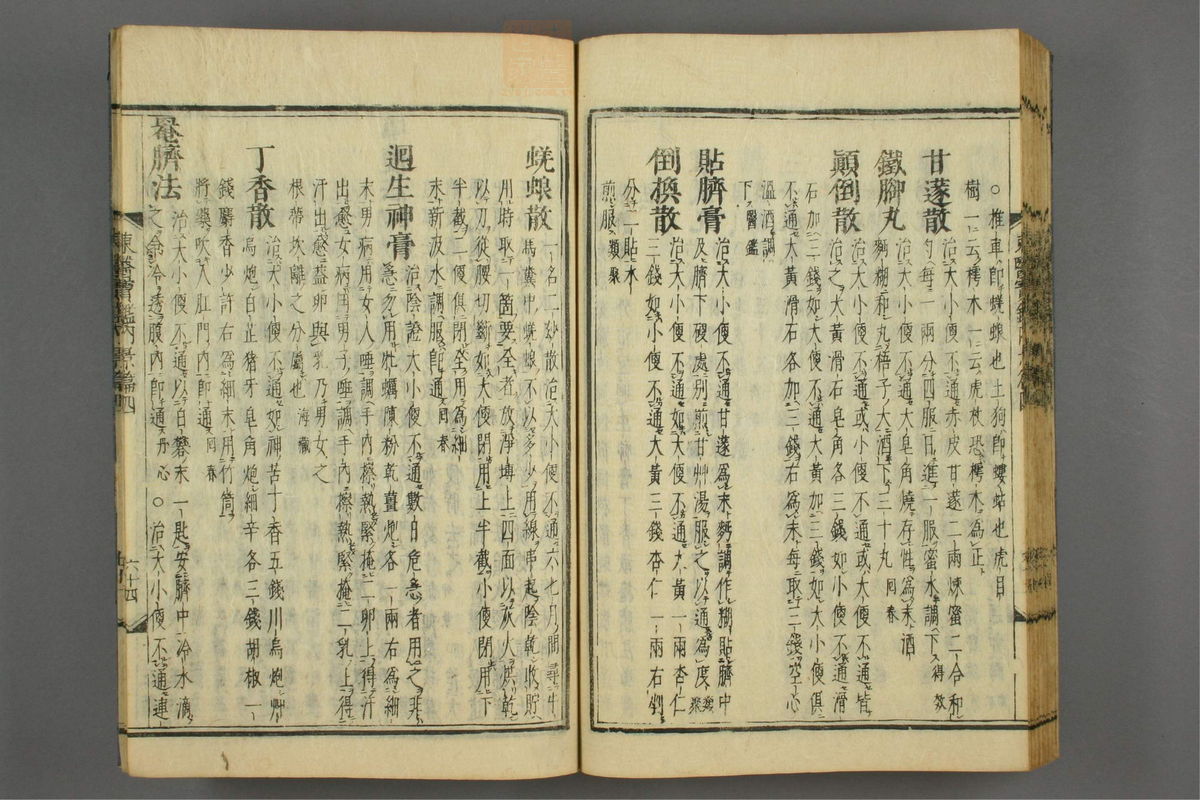 ○推車即蜣蜋也土狗即螻蛄也虎目
樹一云樗木一云虎杖恐樗木為正
甘遂散 治大小便不通赤皮甘遂二兩煉蜜二合和
勻每一兩分四服日進一服蜜水調下 得效
鐵脚丸 治大小便不通大皂角燒存性為末酒
麪糊和丸梧子大酒下三十丸 回春
顚倒散 治大小便不通或小便不通或大便不通皆
治之大黃滑石皂角各三錢如小便不通滑
石加三錢如大便不通大黃加三錢如大小便俱
不通大黃滑石各加三錢右為末每取三錢空心
溫酒調
下 醫鑑
貼臍膏 治大小便不通甘遂為末麪調作糊貼臍中
及臍下硬處別煎甘艸湯服之以通為度 類聚
倒換散 治大小便不通如大便不通大黃一兩杏仁
三錢如小便不通大黃三錢杏仁一兩右剉
分二貼水
煎服 類聚
蜣蜋散 一名二妙散治大小便不通六七月間尋牛
馬糞中蜣蜋不以多少用線串起陰乾收貯
用時取一箇要全者放淨塼上四面以灰火烘乾
以刀從腰切斷如大便閉用上半截小便閉用下
半截二便俱閉全用為細
末新汲水調服即通 回春
迴生神膏 治陰證大小便不通數日危急者用之非
急勿用牡蠣陳粉乾薑炮各一兩右為細
末男病用女人唾調手內擦熱緊掩二卵上得汗
出愈女病用男子唾調手內擦熱緊掩二乳上得
汗出愈蓋卵與乳乃男女之
根蒂坎離之分屬也 海藏
丁香散 治大小便不通如神苦丁香五錢川烏炮艸
烏炮白芷猪牙皂角炮細辛各三錢胡椒一
錢麝香少許右為細末用竹筒
將藥吹入肛門內即通 回春
罨臍法 治大小便不通以白礬末一匙安臍中冷水滴
之令冷透腹內即通 丹心 ○治大小便不通連
東醫寶鑑內景篇四
六十四